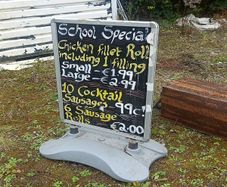 School Special
Chicken Fillet Roll
including 1 filling
Small - € 1.99
Large - € 2.99
10 Cocktail
Sausages 99c
6 Sausage
Rolls
€2.00